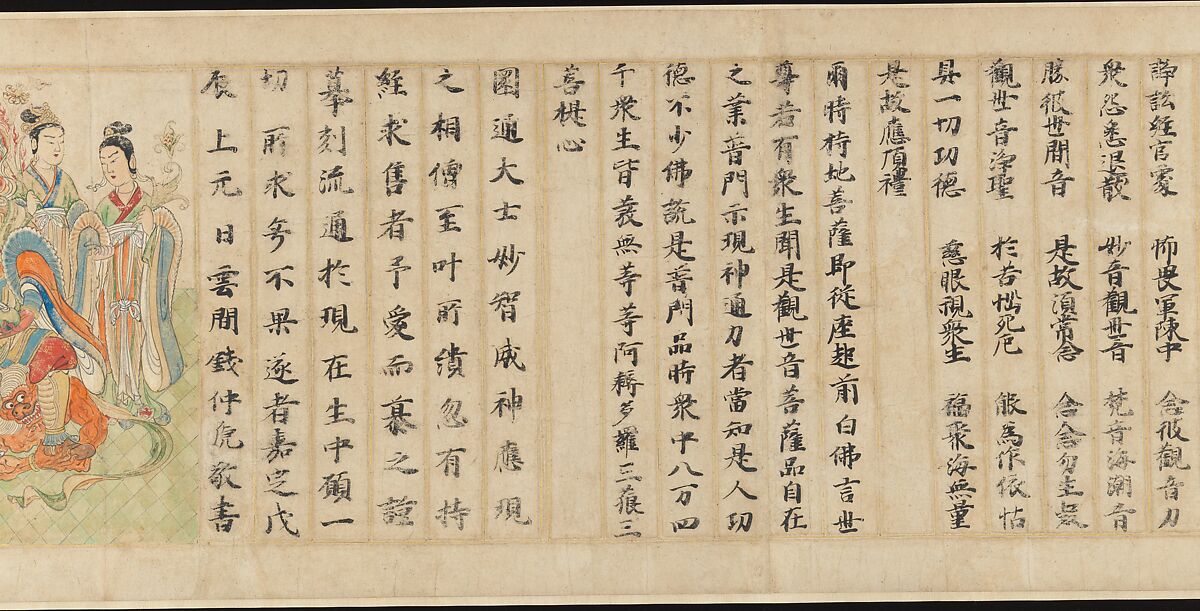 諍訟經官處　怖畏軍陣中　念彼觀音力
衆怨悉退散　妙音觀世音　梵音海潮音
勝彼世間音　是故須常念　念念勿生疑
觀世音淨聖　於苦惱死厄　能為作依怙
具一切功德　慈眼視衆生　福聚海無量
是故應頂禮
爾時持地菩薩即從座起前白佛言世
尊若有衆生聞是觀世音菩薩品自在
之業普門示現神通力者當知是人功
德不少佛說是普門品時衆中八万四
千衆生皆發無等等阿耨多羅三藐三
菩提心
圓通大士妙智威神應現
之相傳至叶所繢忽有持
經求售者予愛而慕之謹
摹刻流通於現在生中願一
切所求无不果遂者嘉定戊
辰上元日雲間錢仲虎敬書